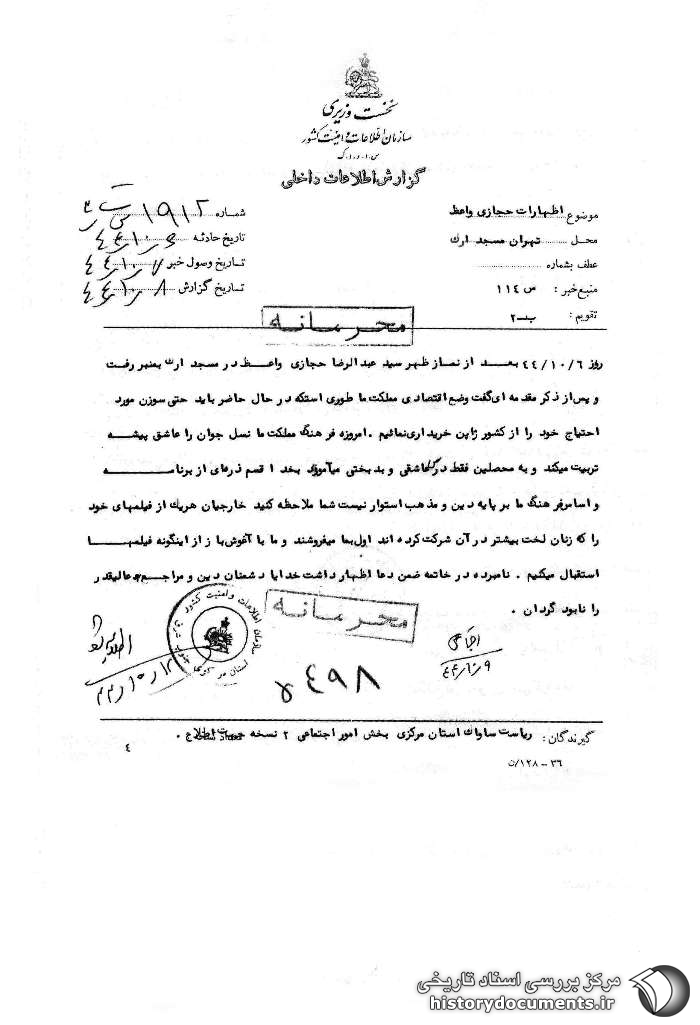 نخست وزیری
سازمان اطلاعات و امنیت کشور
س.ا.و.ا.ک
گزارش اطلاعات داخلی
موضوع اظهارات حجازی واعظ
شماره ۱۹۱۲
محل تهران مسجد ارك
تاریخ حادثه ۴۴/۱۰/۶
عطف بشماره
تاریخ وصول خبر ۴۴/۱۰/۷
منبع خبر : س ۱۱۴
تاریخ گزارش ۴۴/۱۰/۸
تقویم : ب-۲
محرمانه
روز ۴۴/۱۰/۶ بعد از نماز ظهر سید عبدالرضا حجازی واعظ در مسجد ارك بمنبر رفت
و پس از ذکر مقدمه ای گفت وضع اقتصادی مملکت ما طوری استکه در حال حاضر باید حتی سوزن مورد
احتیاج خود را از کشور ژاپن خریداری نمائیم . امروزه فرهنگ مملکت ما نسل جوان را عاشق پیشه
تربیت میکند و به محصلین فقط درس عاشقی و بدبختی میآموزد بخدا قسم ذره‌ای از برنامه
و اساس فرهنگ ما بر پایه دین و مذهب استوار نیست شما ملاحظه کنید خارجیان هریك از فیلمهای خود
را که زنان لخت بیشتر در آن شرکت کرده اند اول بما میفروشند و ما با آغوش باز از اینگونه فیلمها
استقبال میکنیم . نامبرده در خاتمه ضمن دعا اظهار داشت خدایا دشمنان دین و مراجع عالیقدر
را نابود گردان .
محرمانه
سازمان اطلاعات و امنیت کشور
۴۴/۱۰/۹
۴۹۸
گیرندگان : ریاست ساواك استان مرکزی بخش امور اجتماعی ۲ نسخه جهت اطلاع .
۴
۳۶ - ۱۲۸/ن
مرکز بررسی اسناد تاریخی
historydocuments.ir